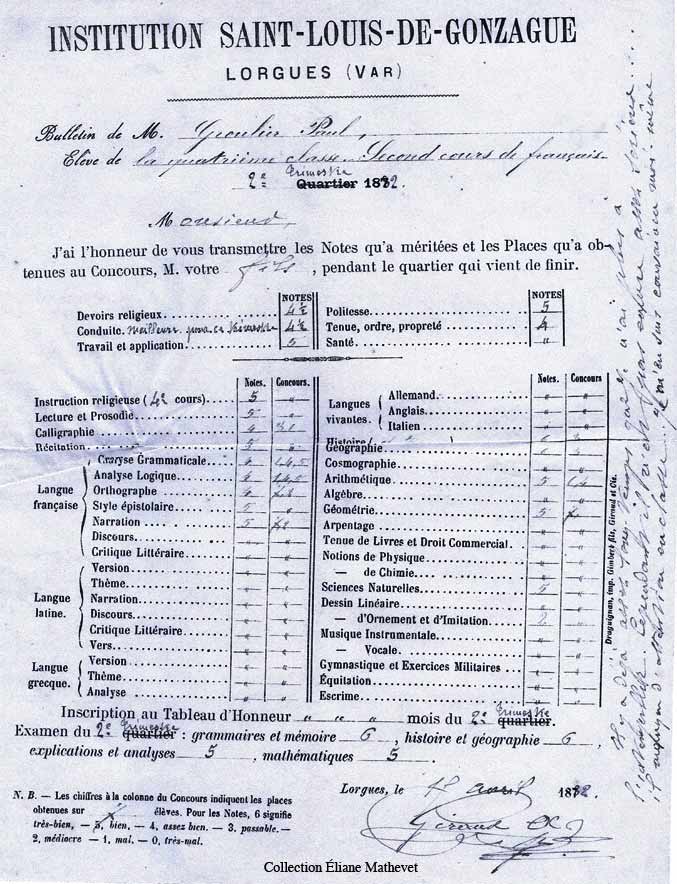 INSTITUTION SAINT-LOUIS-DE-GONZAGUE
LORGUES (VAR)
Bulletin de M. Paul,
Elève de la quatrième classe. Second cours de français.
2e trimestre Quartier 1882.
Monsieur,
J'ai l'honneur de vous transmettre les Notes qu'a méritées et les Places qu'a ob-
tenues au Concours, M. votre fils, pendant le quartier qui vient de finir.
NOTES
Devoirs religieux. 4½
Conduite. meilleure 4½
Travail et application 5
NOTES
Politesse 5
Tenue, ordre, propreté 4
Santé "
Notes. Concours.
Instruction religieuse (4e cours) 5 "
Lecture et Prosodie 5 "
Calligraphie 4
Récitation 5
Langue française
Analyse Grammaticale 4
Analyse Logique 4
Orthographe 4
Style épistolaire 5
Narration 5
Discours " "
Critique Littéraire " "
Langue latine.
Version " "
Thème " "
Narration " "
Discours " "
Critique Littéraire " "
Vers " "
Langue grecque.
Version " "
Thème " "
Analyse " "
Notes. Concours
Langues vivantes.
Allemand " "
Anglais " "
Italien " "
Histoire
Géographie
Cosmographie " "
Arithmétique 5
Algèbre " "
Géométrie 5
Arpentage " "
Tenue de Livres et Droit Commercial " "
Notions de Physique " "
— de Chimie " "
Sciences Naturelles 5 "
Dessin Linéaire " "
— d'Ornement et d'Imitation 2 "
Musique Instrumentale " "
— Vocale " "
Gymnastique et Exercices Militaires " "
Équitation " "
Escrime " "
Inscription au Tableau d'Honneur " " " mois du 2e trimestre quartier.
Examen du 2e trimestre quartier : grammaires et mémoire 6, histoire et géographie 6,
explications et analyses 5, mathématiques 5.
N. B. — Les chiffres à la colonne du Concours indiquent les places
obtenues sur élèves. Pour les Notes, 6 signifie
très-bien, — 5, bien, — 4, assez bien. — 3. passable. —
2, médiocre — 1, mal. — 0, très-mal.
Lorgues, le avril 1882.
Giraud
Draguignan, imp. Gimbert fils, Giraud et Cie.
Il y a déjà assez long-temps que je n'ai plus à
Cependant il n'est pas encore assez sérieux...
d'attention en classe. je m'en suis convaincu moi-même
Collection Éliane Mathevet